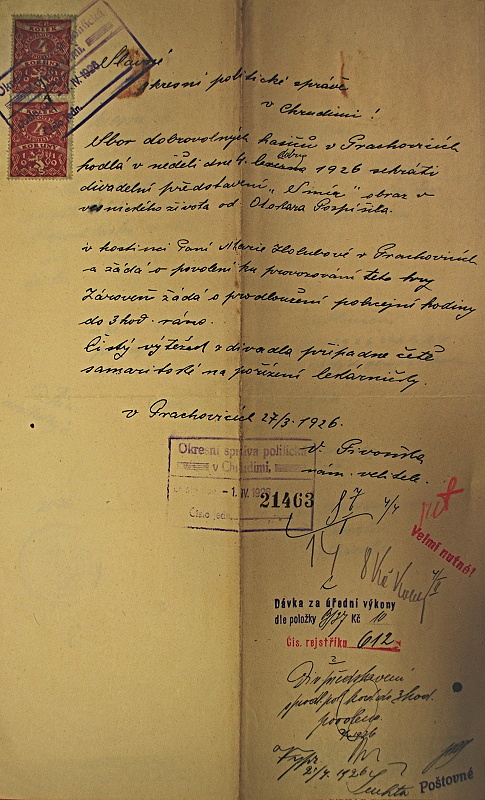 Slavné
okresní politické správě
v Chrudimi!
Sbor dobrovolných hasičů v Prachovicích
hodlá v neděli dne 4. dubna 1926 sehráti
divadelní představení „Smír" obraz v
vesnického života od Otokara Pospíšila.
v hostinci Paní Marie Holubové v Prachovicích
a žádá o povolení ku provozování této hry
Zároveň žádá o prodloužení policejní hodiny
do 3 hod. ráno.
Čistý výtěžek z divadla připadne četě
samaritské na pořízení lekárničky.
v Prachovicích 27/3. 1926.
V. Pivoňka
nám. velitele.
Okresní správa politická
v Chrudimi,
- 1. IV. 1926
21463
Číslo jedn.
87
4/4
1
14
Velmi nutné!
8 Kč
Dávka za úřední výkony
dle položky 9/37 Kč 10
Čís. rejstříku 612
Div. představení
a prodl. pol. hod. do 3 hod.
povoleno.
1926
Poštovné
KOLEK
4
KORUNY
KOLEK
4
KORUNY
IV. 1926